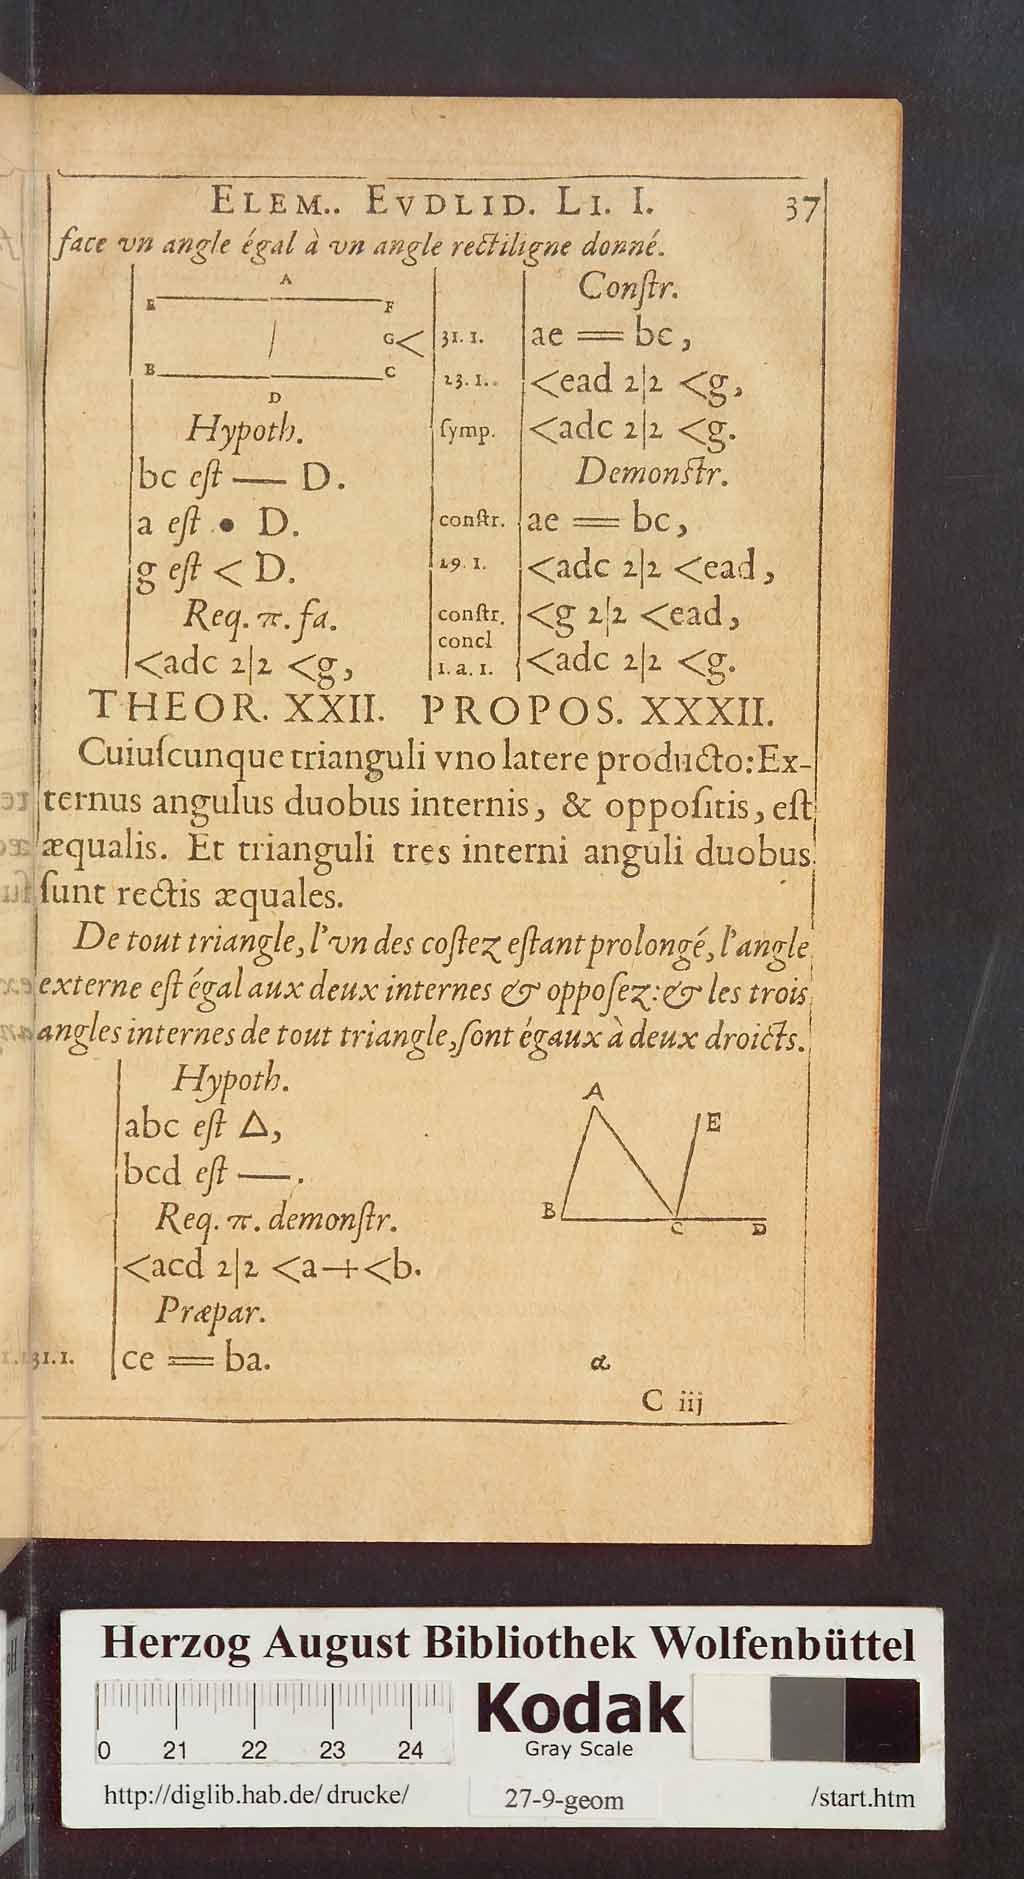 ELEM.. EVDLID. LI. I. 37
face vn angle égal à vn angle rectiligne donné.
A
E F
G<
B C
D
Hypoth.
bc eſt — D.
a eſt • D.
g eſt < D.
Req. π. fa.
<adc 2|2 <g,
Conſtr.
31. 1. ae = bc,
23. 1.. <ead 2|2 <g,
ſymp. <adc 2|2 <g.
Demonſtr.
conſtr. ae = bc,
29. 1. <adc 2|2 <ead,
conſtr. <g 2|2 <ead,
concl
1. a. 1. <adc 2|2 <g.
THEOR. XXII. PROPOS. XXXII.
Cuiuſcunque trianguli vno latere producto: Ex-
ternus angulus duobus internis, & oppoſitis, eſt
æqualis. Et trianguli tres interni anguli duobus
ſunt rectis æquales.
De tout triangle, l'vn des coſtez eſtant prolongé, l'angle
externe eſt égal aux deux internes & oppoſez: & les trois
angles internes de tout triangle, ſont égaux à deux droicts.
Hypoth.
abc eſt Δ,
bcd eſt —.
Req. π. demonſtr.
<acd 2|2 <a+<b.
Præpar.
31.1. ce = ba.
A
E
B C D
α
C iij
Herzog August Bibliothek Wolfenbüttel
0 21 22 23 24
Kodak
Gray Scale
http://diglib.hab.de/drucke/ 27-9-geom /start.htm